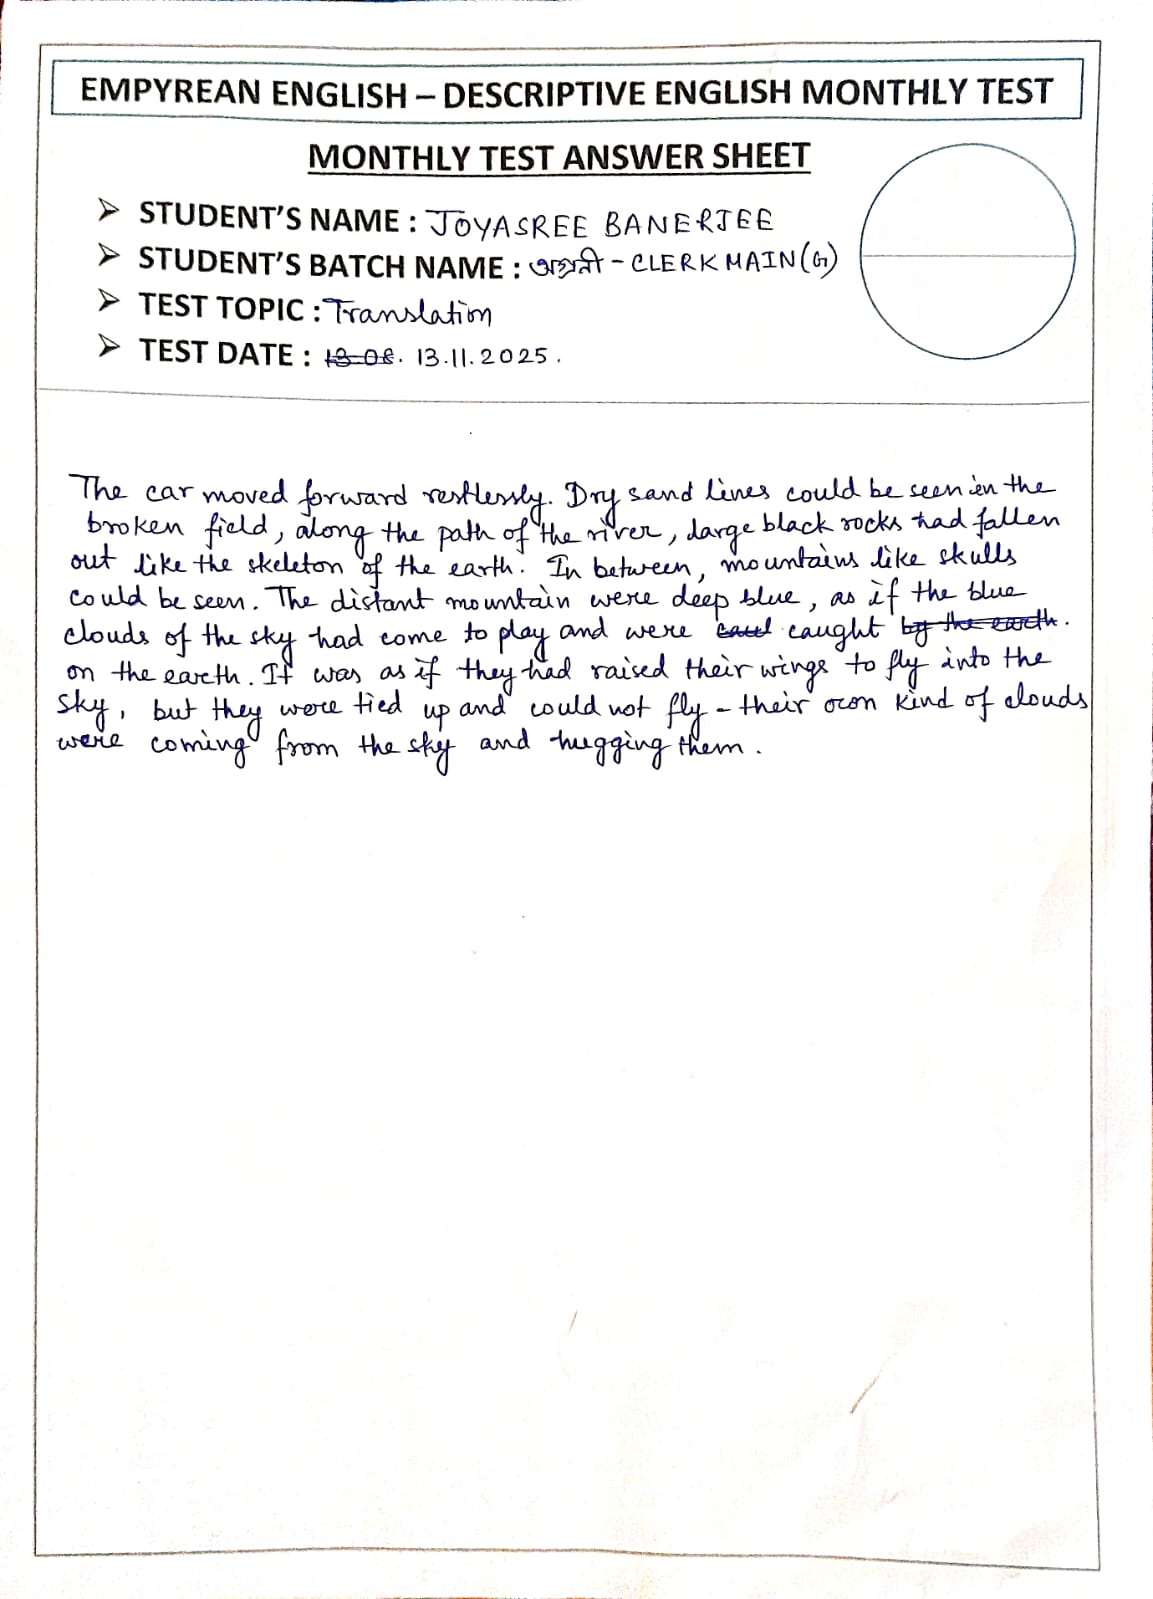 EMPYREAN ENGLISH – DESCRIPTIVE ENGLISH MONTHLY TEST
MONTHLY TEST ANSWER SHEET
➢ STUDENT'S NAME : JOYASREE BANERJEE
➢ STUDENT'S BATCH NAME : - CLERK MAIN (G)
➢ TEST TOPIC : Translation
➢ TEST DATE : 13.08. 13.11.2025.
The car moved forward restlessly. Dry sand lines could be seen in the
broken field, along the path of the river, large black rocks had fallen
out like the skeleton of the earth. In between, mountains like skulls
could be seen. The distant mountain were deep blue, as if the blue
clouds of the sky had come to play and were caught by the earth.
on the earth. It was as if they had raised their wings to fly into the
sky, but they were tied up and could not fly - their own kind of clouds
were coming from the sky and hugging them.